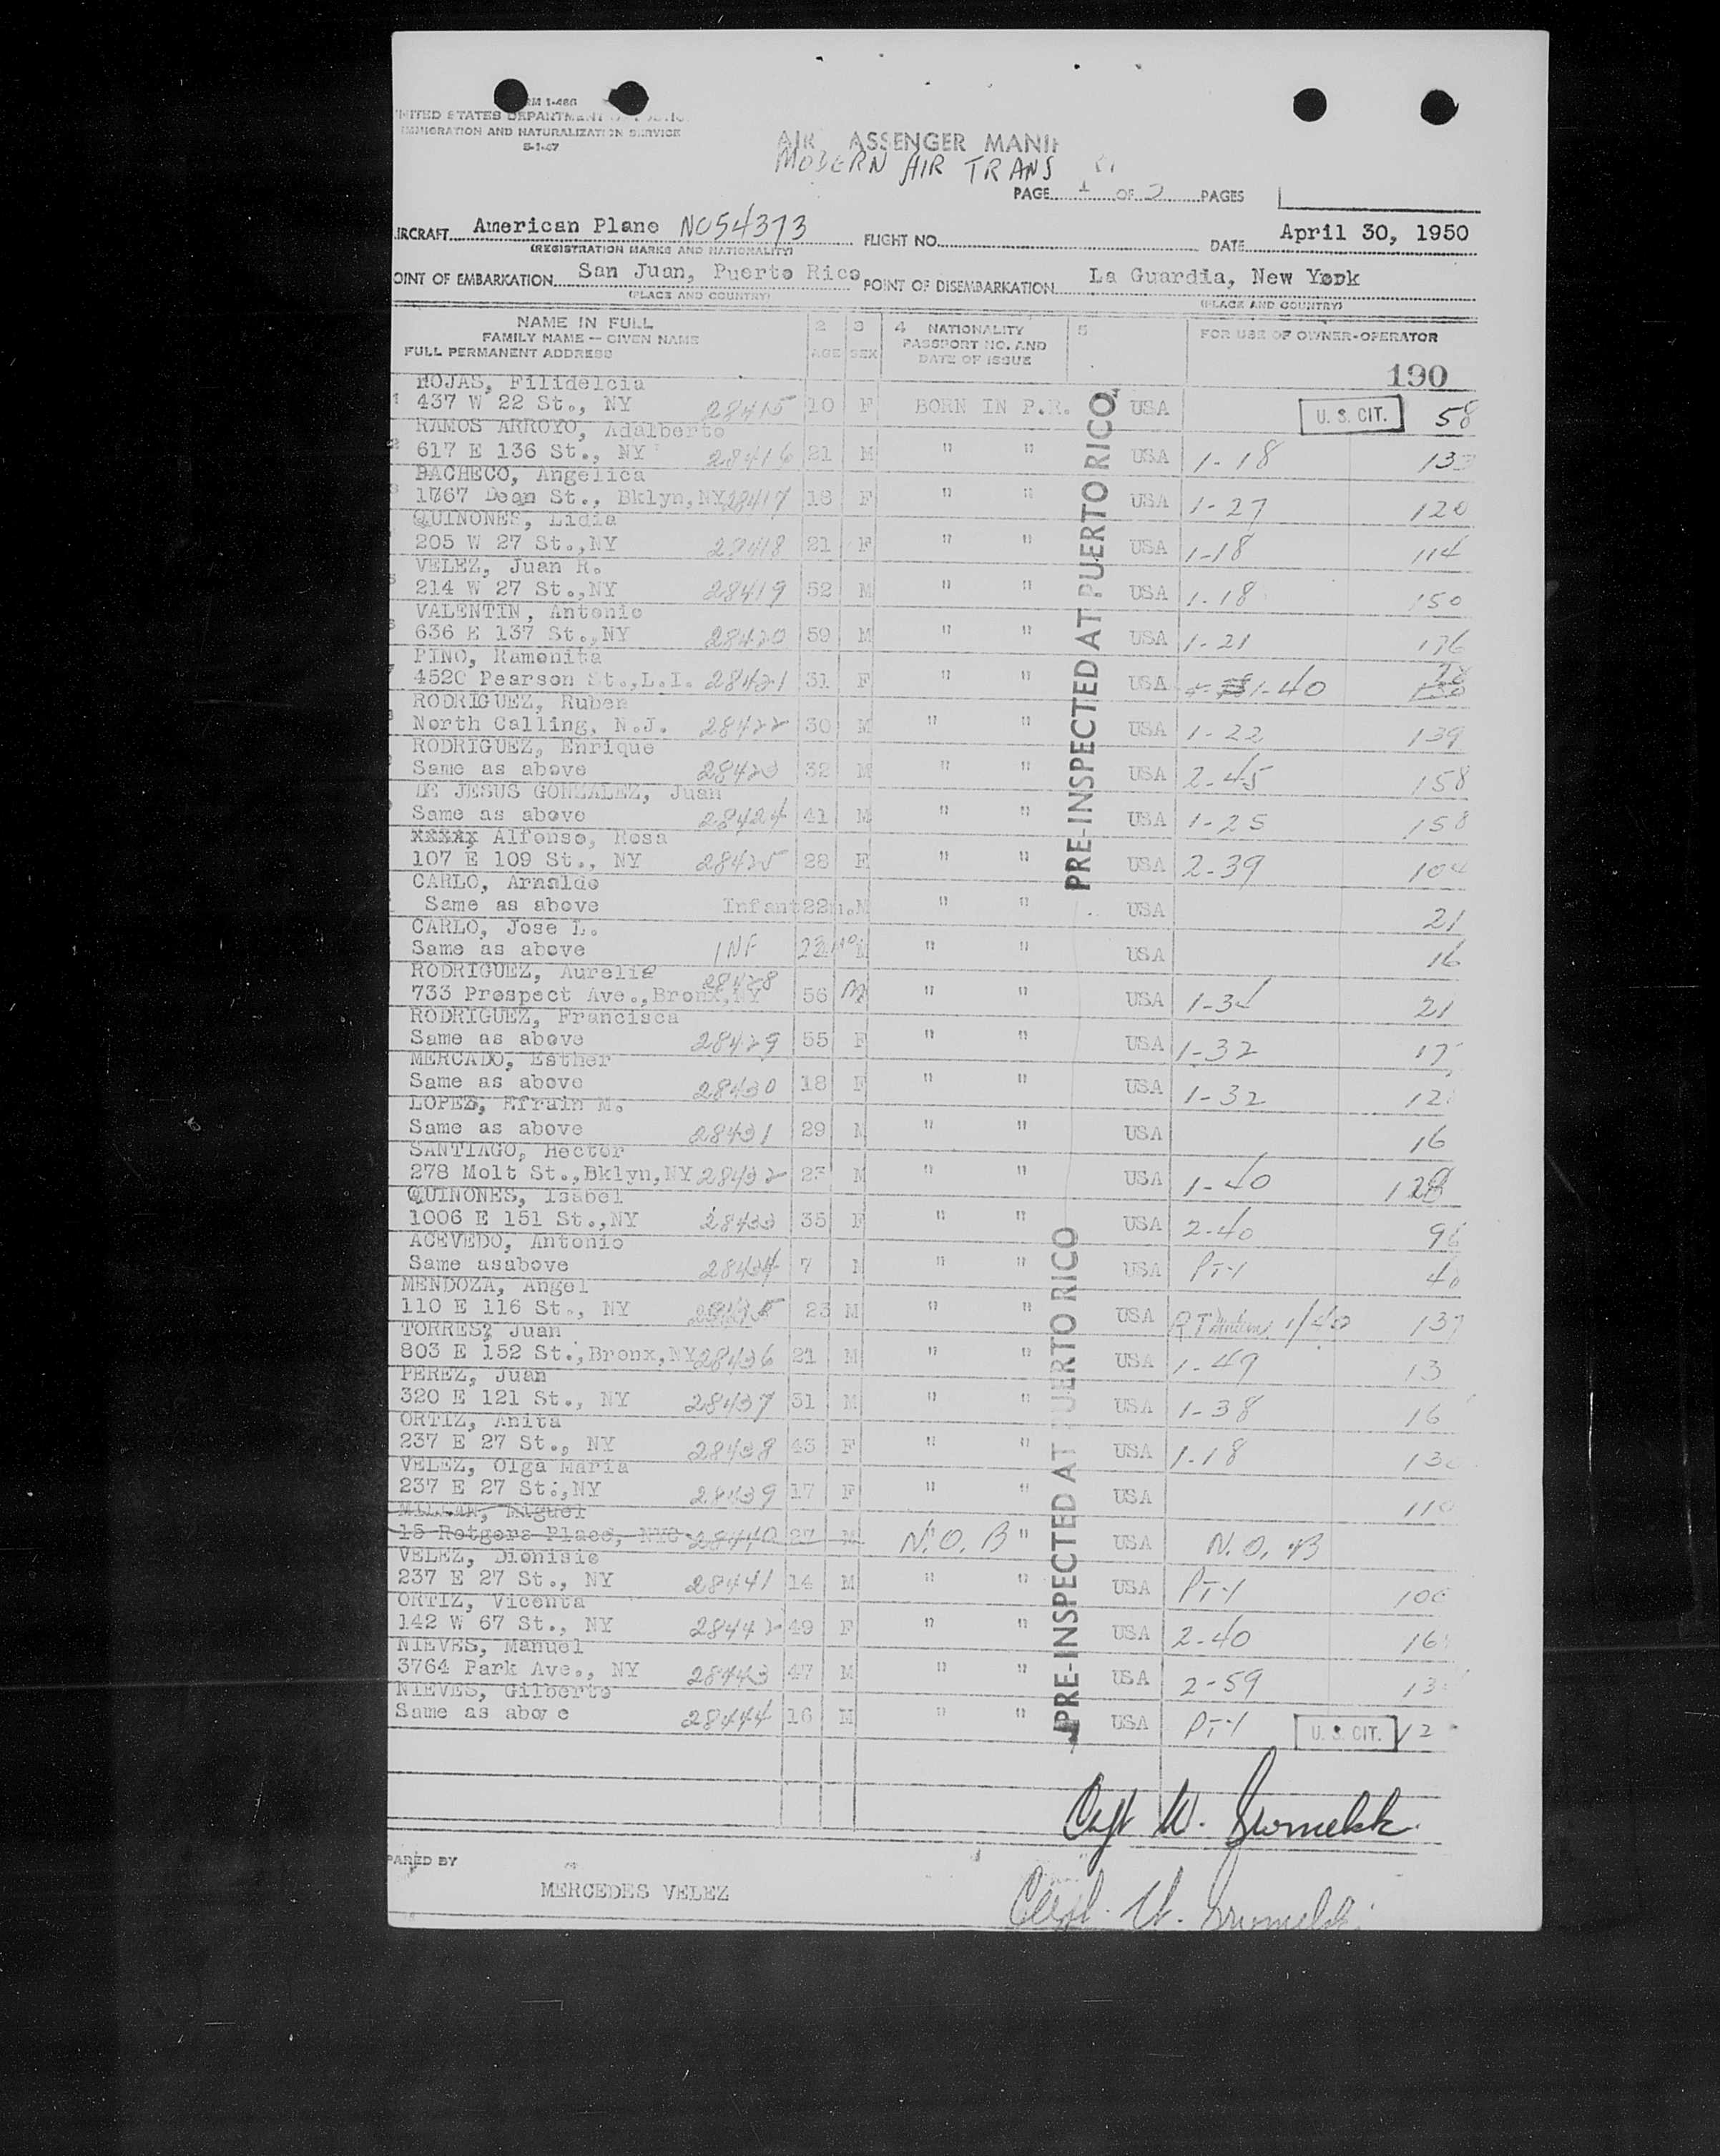 UNITED STATES DEPARTMENT
IMMIGRATION AND NATURALIZATION SERVICE
5-1-47
AIR ASSENGER MANI
MODERN AIR TRANS
PAGE 1 OF 2 PAGES
IRCRAFT American Plane NC54373 FLIGHT NO. DATE April 30, 1950
(REGISTRATION MARKS AND NATIONALITY)
OINT OF EMBARKATION San Juan, Puerto Rico POINT OF DISEMBARKATION La Guardia, New York
(PLACE AND COUNTRY) (PLACE AND COUNTRY)
NAME IN FULL 2 3 4 NATIONALITY 5
FAMILY NAME — GIVEN NAME PASSPORT NO. AND FOR USE OF OWNER-OPERATOR
FULL PERMANENT ADDRESS AGE SEX DATE OF ISSUE
190
ROJAS, Filidelcia
1 437 W 22 St., NY 28415 10 F BORN IN P.R. USA U. S. CIT. 58
RAMOS ARROYO, Adalberto
2 617 E 136 St., NY 28416 21 M " " USA 1-18 133
PACHECO, Angelica
3 1767 Dean St., Bklyn,NY 28417 18 F " " USA 1-27 120
QUINONES, Lidia
205 W 27 St.,NY 28418 21 F " " USA 1-18 114
VELEZ, Juan R.
5 214 W 27 St.,NY 28419 52 M " " USA 1-18 150
VALENTIN, Antonio
6 636 E 137 St.,NY 28420 59 M " " USA 1-21 176
PINO, Ramonita
7 4520 Pearson St.,L.I. 28421 31 F " " USA 1-40
RODRIGUEZ, Ruben
8 North Calling, N.J. 28422 30 M " " USA 1-22 139
RODRIGUEZ, Enrique
Same as above 28423 32 M " " USA 2-45 158
DE JESUS GONZALEZ, Juan
Same as above 28424 41 M " " USA 1-25 158
Alfonso, Rosa
107 E 109 St., NY 28425 28 F " " USA 2-39 104
CARLO, Arnaldo
Same as above Infant 22m. M " " USA 21
CARLO, Jose L.
Same as above INF MO M " " USA 16
RODRIGUEZ, Aurelia
733 Prospect Ave.,Bronx,NY 28428 56 M " " USA 21
RODRIGUEZ, Francisca
Same as above 28429 55 F " " USA 1-32 17
MERCADO, Esther
Same as above 28430 18 F " " USA 1-32 12
LOPEZ, Efrain M.
Same as above 28431 29 M " " USA 16
SANTIAGO, Hector
278 Molt St.,Bklyn,NY 28432 23 M " " USA 1-40 128
QUINONES, Isabel
1006 E 151 St.,NY 28433 35 F " " USA 2-40 96
ACEVEDO, Antonio
Same asabove 28434 7 M " " USA PT-1 40
MENDOZA, Angel
110 E 116 St., NY 28435 23 M " " USA 137
TORRES, Juan
803 E 152 St.,Bronx,NY 28436 21 M " " USA 1-49 13
PEREZ, Juan
320 E 121 St., NY 28437 31 M " " USA 1-38 16
ORTIZ, Anita
237 E 27 St., NY 28438 43 F " " USA 1-18 13
VELEZ, Olga Maria
237 E 27 St.,NY 28439 17 F " " USA 110
Miguel
15 Rotgers Place, NYC 28440 27 M N.O.B " USA N.O.B
VELEZ, Dionisio
237 E 27 St., NY 28441 14 M " " USA PT-1 100
ORTIZ, Vicenta
142 W 67 St., NY 28442 49 F " " USA 2-40 16
NIEVES, Manuel
3764 Park Ave., NY 28443 47 M " " USA 2-59 13
NIEVES, Gilberto
Same as above 28444 16 M " " USA PT-1 U. S. CIT. 12
PRE-INSPECTED AT PUERTO RICO
PRE-INSPECTED AT PUERTO RICO
Capt W.
PARED BY
MERCEDES VELEZ
Capt. W.